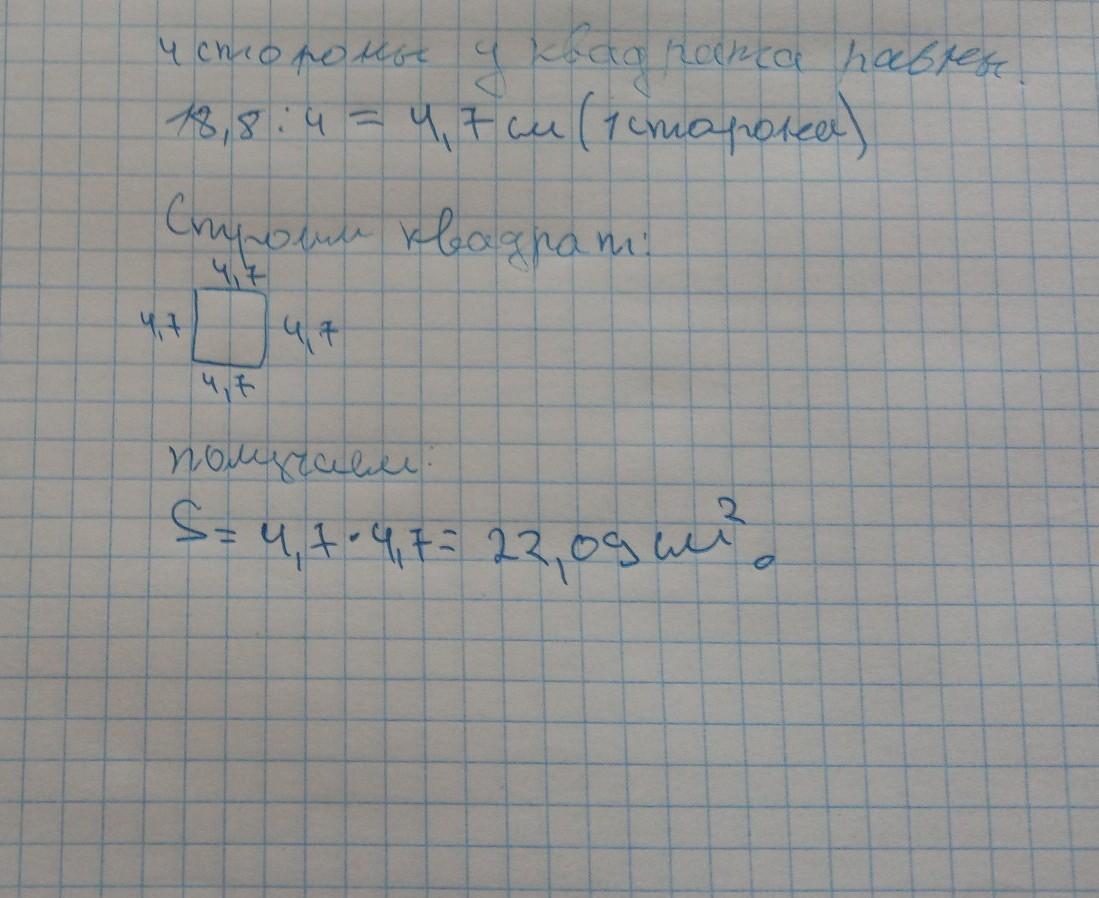 4 стороны у квадрата равны.
18,8:4 = 4,7 см (1 сторона)
Строим квадрат:
4,7
4,7 4,7
4,7
получаем:
S = 4,7·4,7 = 22,09 см².